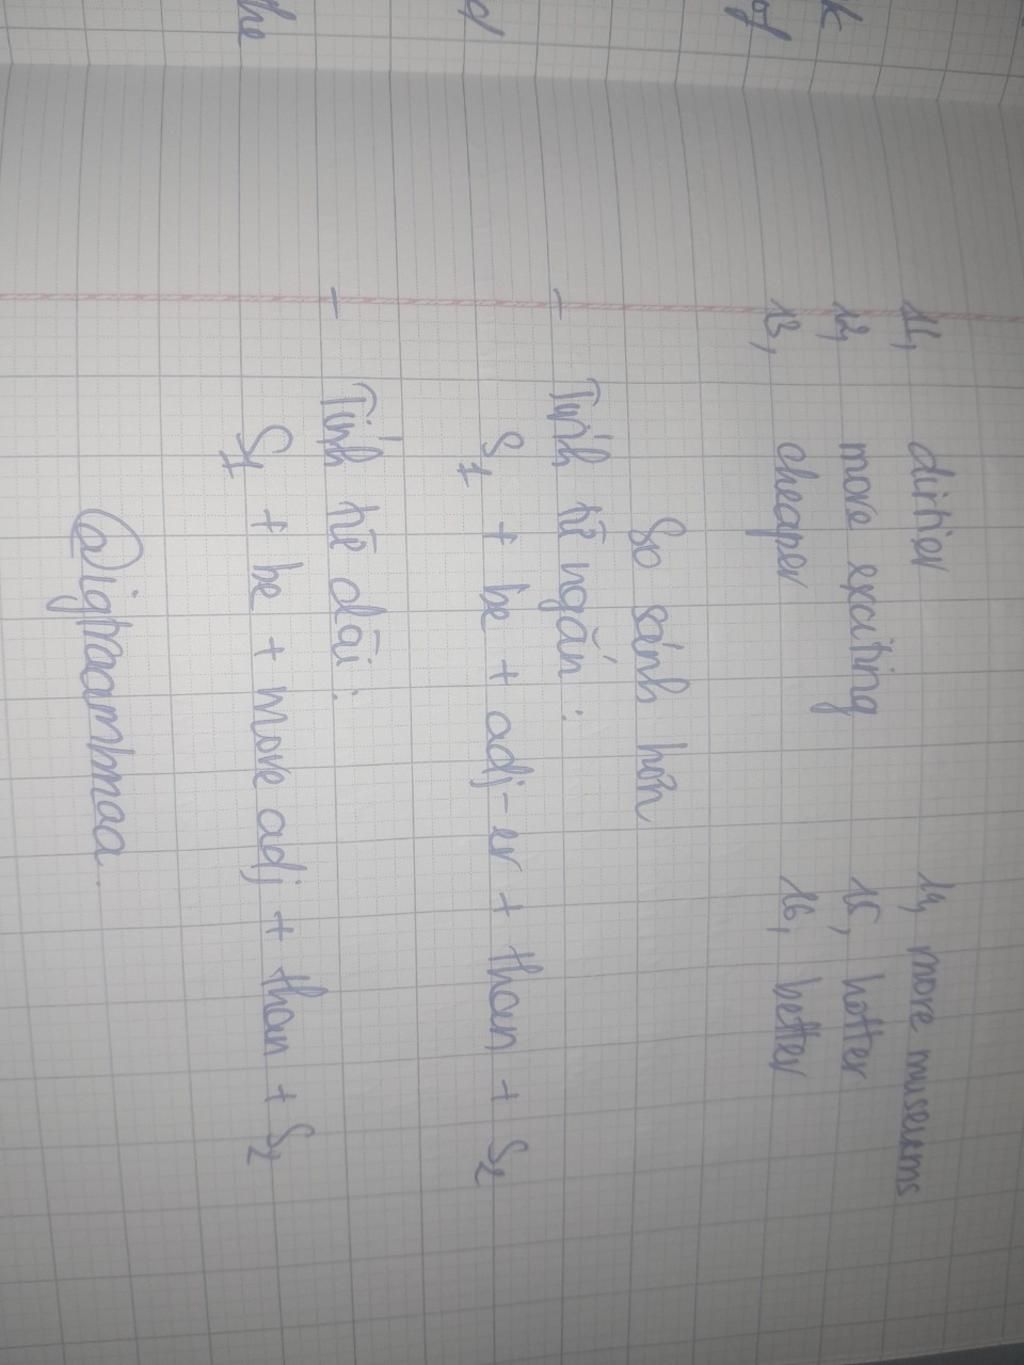 11, dirtier 14, more museums
12, more exciting 15, hotter
13, cheaper 16, better
So sánh hơn
- Tính từ ngắn :
S1 + be + adj-er + than + S2
- Tính từ dài :
S1 + be + more adj + than + S2
k
of
d
the